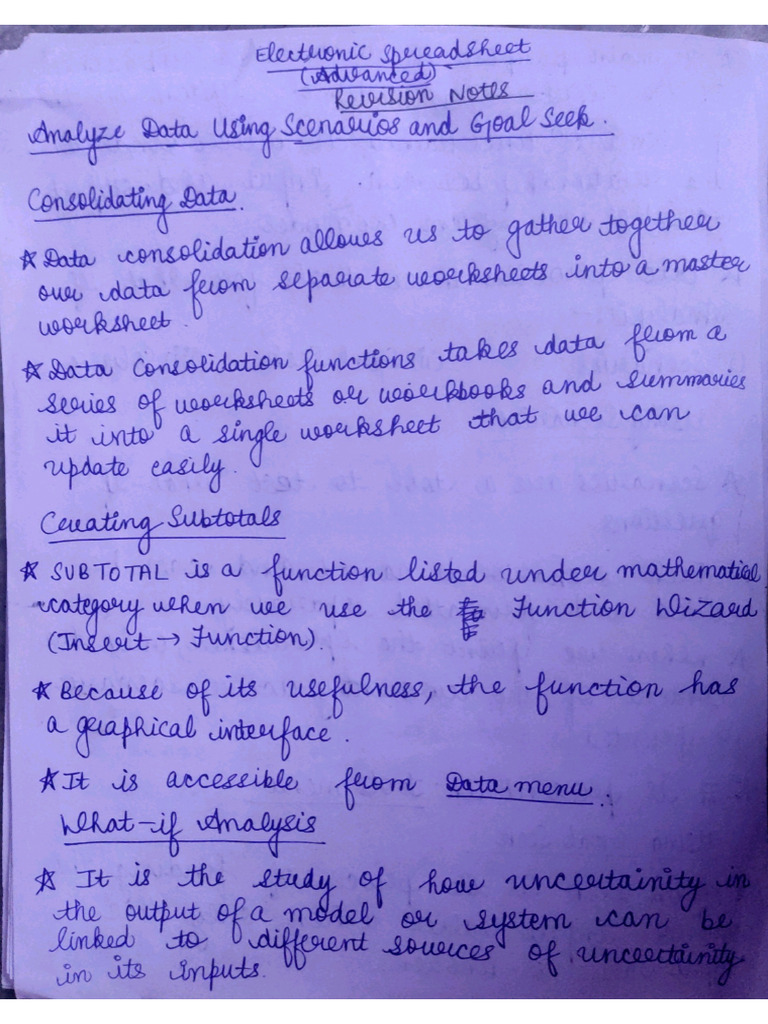 Electronic Spreadsheet
(Advanced)
Revision Notes
Analyze Data Using Scenarios and Goal Seek.
Consolidating Data.
☆ Data consolidation allows us to gather together
our data from separate worksheets into a master
worksheet.
☆ Data Consolidation functions takes data from a
series of worksheets or workbooks and summaries
it into a single worksheet that we can
update easily.
Creating Subtotals
☆ SUBTOTAL is a function listed under mathematical
category when we use the Function Wizard
(Insert → Function).
☆ Because of its usefulness, the function has
a graphical interface.
☆ It is accessible from Data menu.
What-if Analysis
☆ It is the study of how uncertainity in
the output of a model or system can be
linked to different sources of uncertainity
in its inputs.